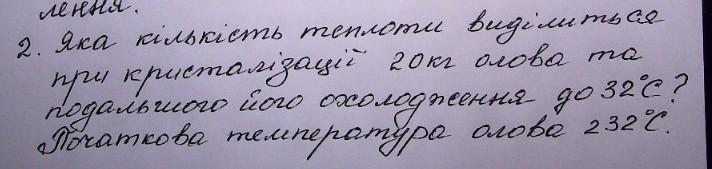 лення.
2. Яка кількість теплоти виділиться
при кристалізації 20кг олова та
подальшого його охолодження до 32°С?
Початкова температура олова 232°С.